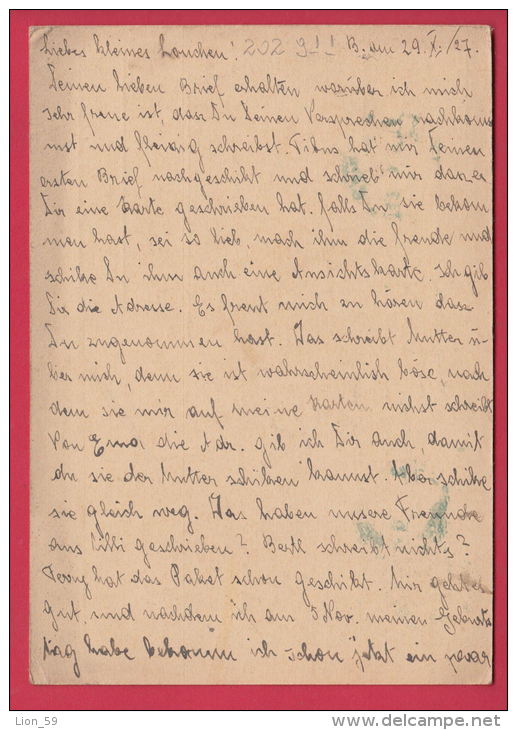 Liebes kleines Louchen! 202 9!! B. am 29. X. /27.
Deinen lieben Brief erhalten worüber ich mich
sehr freue ist, dasz Du Deinen Versprechen nachkomm
nst und fleisig schreibst. hat mir Deinen
ersten Brief nachgeschikt und schrieb mir dasz er
Dir eine Karte geschrieben hat. falls Du sie bekom
men hast, sei so lieb, mach ihm die freude und
schike Du ihm auch eine Ansichtskarte. Ich gib
Dir die Adresse. Es freut mich zu hören dasz
Du zugenommen hast. Was schreibt Mutter ü-
ber mich, denn sie ist wahrscheinlich böse, nach
dem sie mir auf meine Karten nichst schreibt
Von Ema die Adr. gib ich Dir auch, damit
du sie der Mutter schiken kannst. Aber schike
sie gleich weg. Was haben unsere Freunde
aus geschrieben? Bertl schreibt nichts?
hat das Paket schon Geschikt. Mir geht es
gut, und nachdem ich am 5 Nov. meinen Geburts
tag habe bekomm ich schon jetzt ein paar
Lion_59